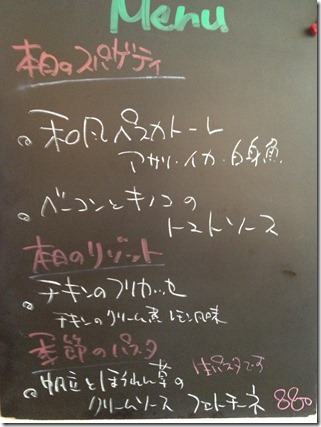 Menu
本日のスパゲティ
和風ペスカトーレ
アサリ・イカ・白身魚
ベーコンとキノコの
トマトソース
本日のリゾット
チキンのフリカッセ
チキンのクリーム煮 レモン風味
季節のパスタ
生パスタです
帆立とほうれん草の
クリームソース フェトチーネ 880